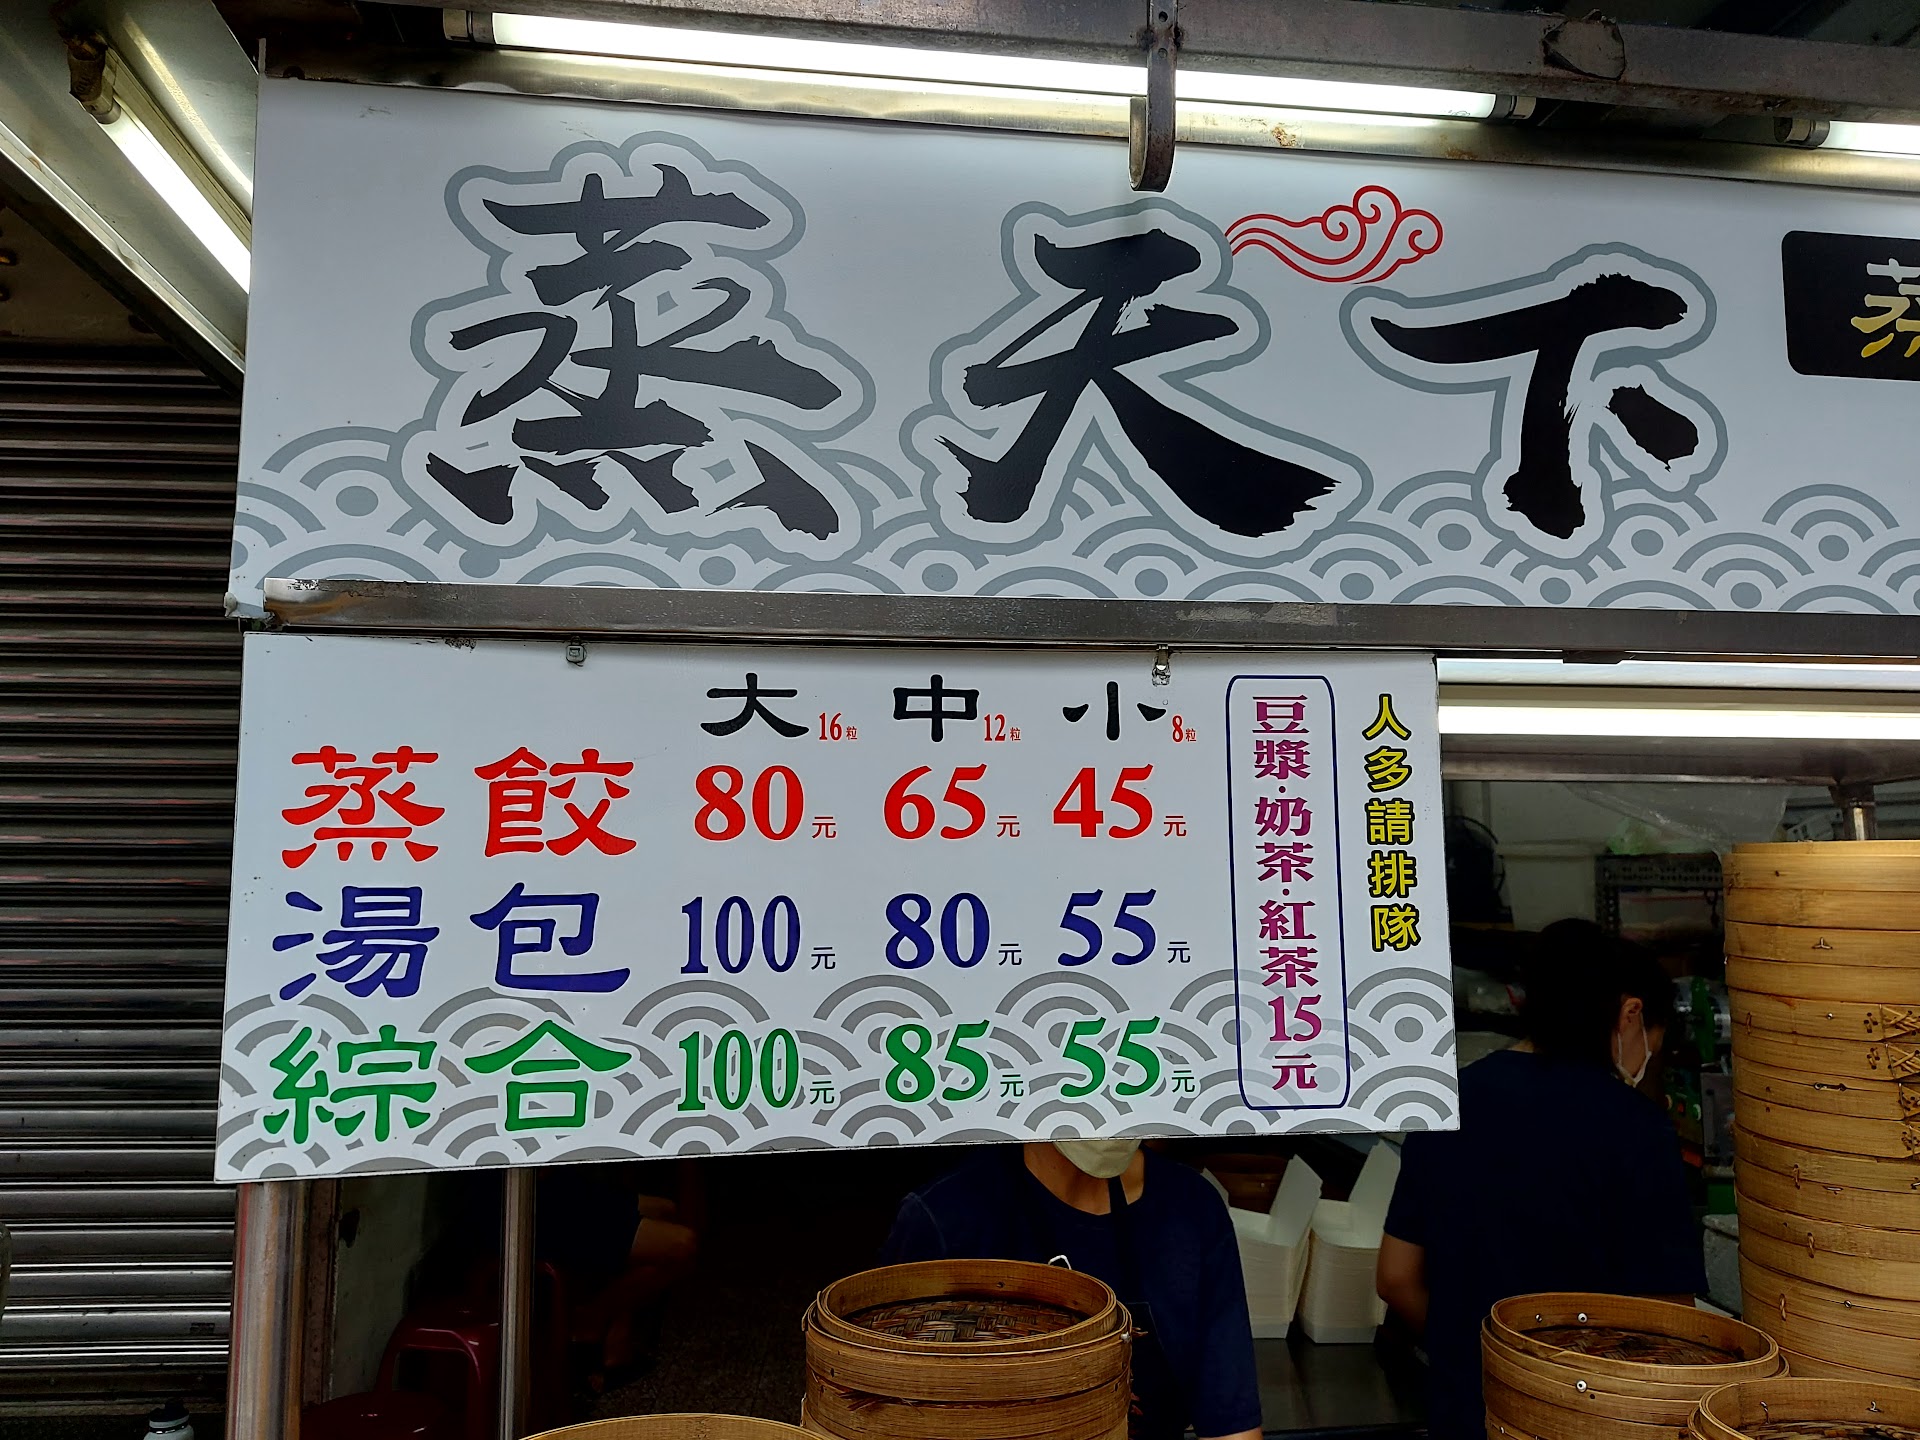 蒸天下
蒸
大16粒 中12粒 小8粒
蒸餃 80元 65元 45元
湯包 100元 80元 55元
綜合 100元 85元 55元
豆漿·奶茶·紅茶15元
人多請排隊